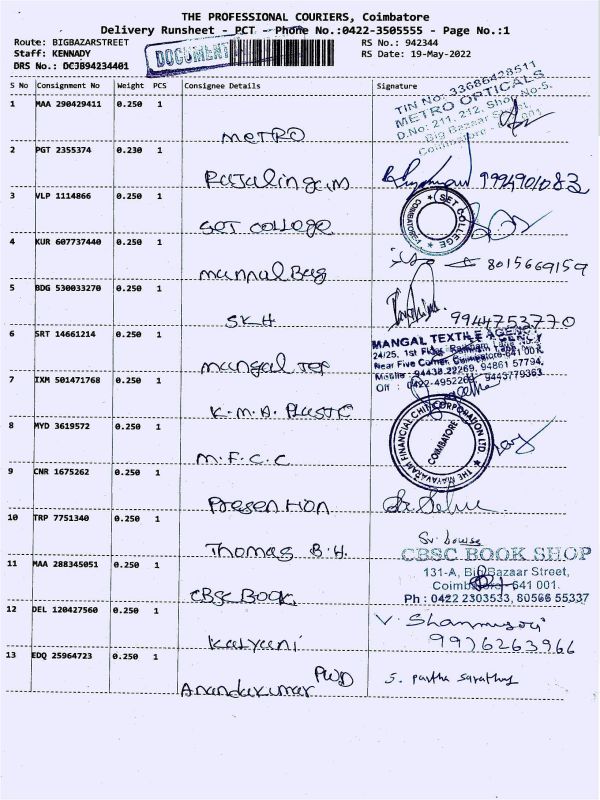 THE PROFESSIONAL COURIERS, Coimbatore
Delivery Runsheet - PCT - Phone No.:0422-3505555 - Page No.:1
Route: BIGBAZARSTREET RS No.: 942344
Staff: KENNADY DOCUMENT RS Date: 19-May-2022
DRS No.: DCJB94234401
S No Consignment No Weight PCS Consignee Details Signature
TIN No: 33686428511
METRO OPTICALS
D.No: 211, 212, Shop No-5,
Big Bazaar Street,
Coimbatore - 641 001
1 MAA 290429411 0.250 1 METRO
2 PGT 2355374 0.230 1 Rajalingam 9994901083
3 VLP 1114866 0.250 1 SET college SET COLLEGE COIMBATORE
4 KUR 607737440 0.250 1 mannal Bag 8015669159
5 BDG 530033270 0.250 1 SKH 9944753770
MANGAL TEXTILE AGENCY
24/25, 1st Floor,
Near Five Corner, Coimbatore-641 001.
Mobile : 94438 22269, 94861 57794,
Off : 0422-4952269, 9443779363
6 SRT 14661214 0.250 1 mangal Tex
7 IXM 501471768 0.250 1 K.M.A. PLASTC
8 MYD 3619572 0.250 1 M.F.C.C THE MAYAVARAM FINANCIAL CHIT CORPORATION LTD. COIMBATORE
9 CNR 1675262 0.250 1 Presention
10 TRP 7751340 0.250 1 Thomas B.H.
CBSC BOOK SHOP
131-A, Big Bazaar Street,
Coimbatore-641 001.
Ph : 0422 2303533, 80566 55337
11 MAA 288345051 0.250 1 CBSC BOOK
12 DEL 120427560 0.250 1 Kalyani V. Shanmugavi
9976263966
13 EDQ 25964723 0.250 1 Anandakumar PWD S. partha sarathy